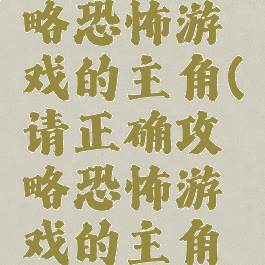 略恐怖游
戏的主角(
请正确攻
略恐怖游
戏的主角